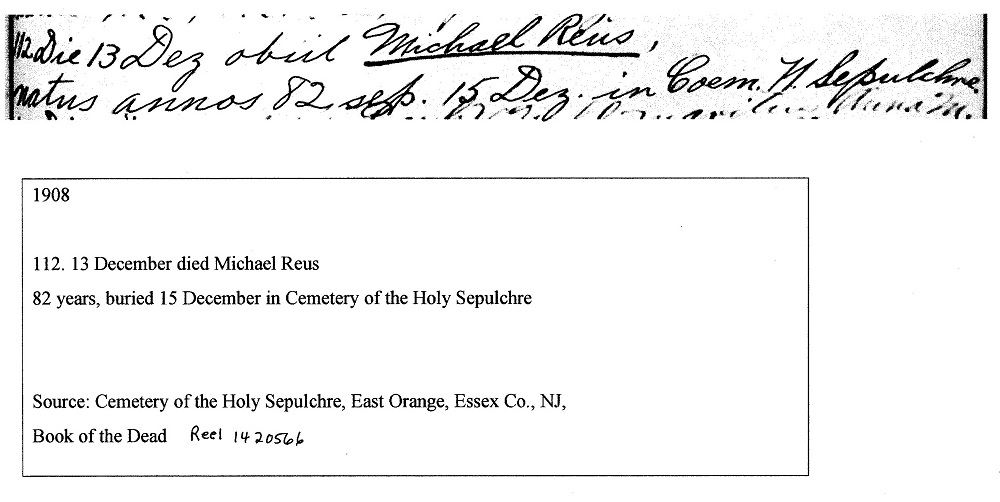 112. Die 13 Dez obiit Michael Reus,
natus annos 82. sep. 15 Dez. in Coem. H. Sepulchre
1908
112. 13 December died Michael Reus
82 years, buried 15 December in Cemetery of the Holy Sepulchre
Source: Cemetery of the Holy Sepulchre, East Orange, Essex Co., NJ,
Book of the Dead Reel 1420566